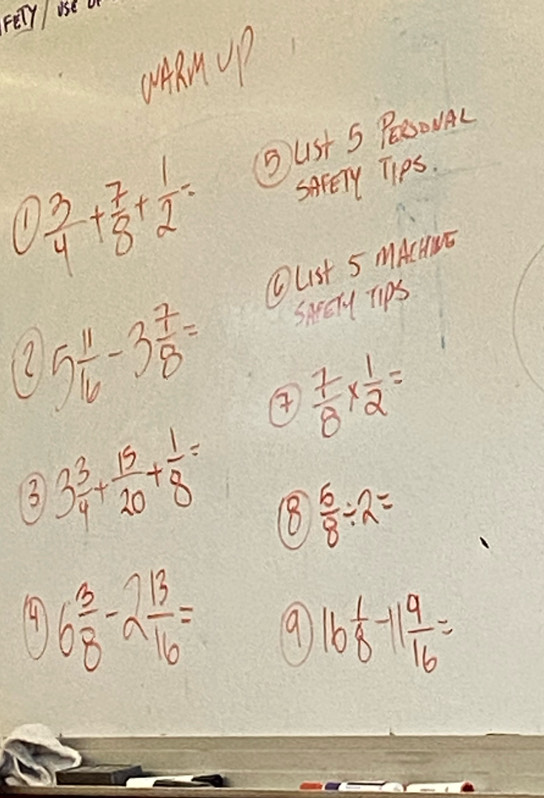 FETY / USE OF
WARM UP
① 3/4 + 7/8 + 1/2 =
② 5 11/16 - 3 7/8 =
③ 3 3/4 + 15/20 + 1/8 =
④ 6 3/8 - 2 13/16 =
⑤ LIST 5 PERSONAL
SAFETY TIPS.
⑥ LIST 5 MACHINE
SAFETY TIPS
⑦ 7/8 x 1/2 =
⑧ 5/8 ÷ 2 =
⑨ 16 1/8 - 11 9/16 =